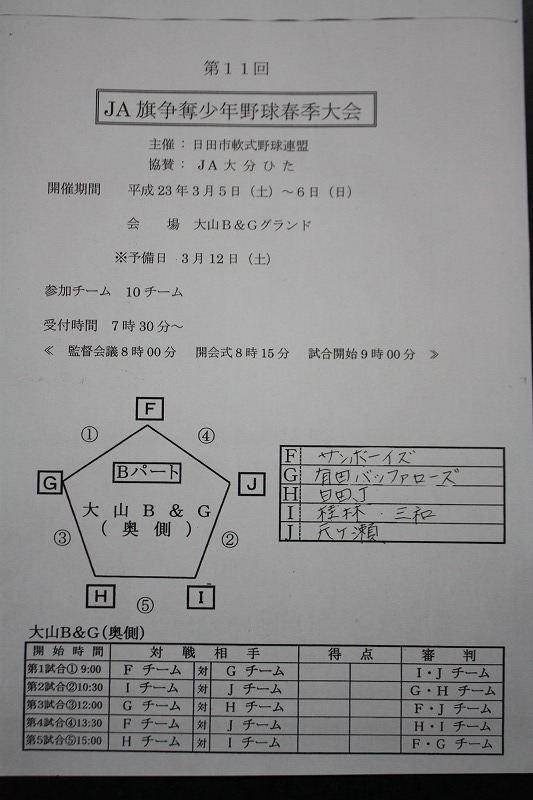 第１１回
JA旗争奪少年野球春季大会
主催：日田市軟式野球連盟
協賛：JA大分ひた
開催期間 平成23年3月5日（土）～6日（日）
会　場 大山B＆Gグランド
※予備日 3月12日（土）
参加チーム 10チーム
受付時間 7時30分～
≪ 監督会議8時00分 開会式8時15分 試合開始9時00分 ≫
F
① ④
Bパート
G J
大山B＆G
（奥側）
③ ②
H I
⑤
F サンボーイズ
G 有田バッファローズ
H 日田J
I 桂林・三和
J 天ヶ瀬
大山B&G（奥側）
開始時間 対戦相手 得点 審判
第1試合① 9:00 Fチーム 対 Gチーム I・Jチーム
第2試合②10:30 Iチーム 対 Jチーム G・Hチーム
第3試合③12:00 Gチーム 対 Hチーム F・Jチーム
第4試合④13:30 Fチーム 対 Jチーム H・Iチーム
第5試合⑤15:00 Hチーム 対 Iチーム F・Gチーム